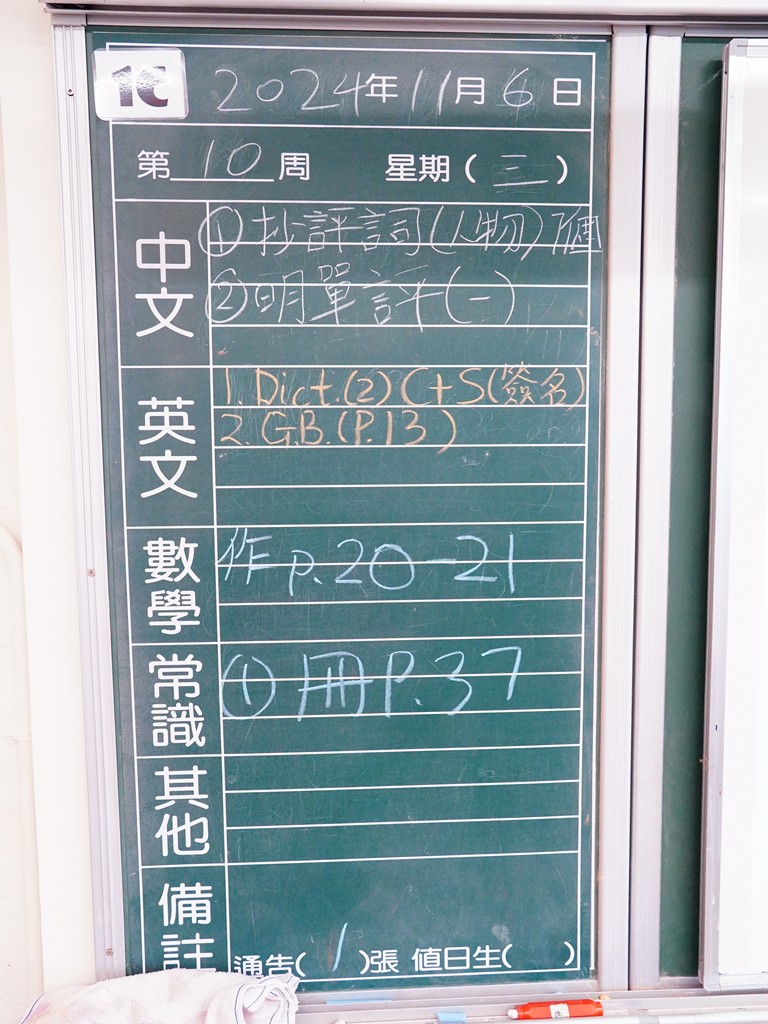 1C 2024年11月6日
第10周 星期(三)
中文
①抄評詞(人物)7個
②明單評(一)
英文
1. Dict.(2) C+S(簽名)
2. G.B.(P.13)
數學
作 p.20-21
常識
① 冊P.37
其他
備註
通告(1)張 值日生( )